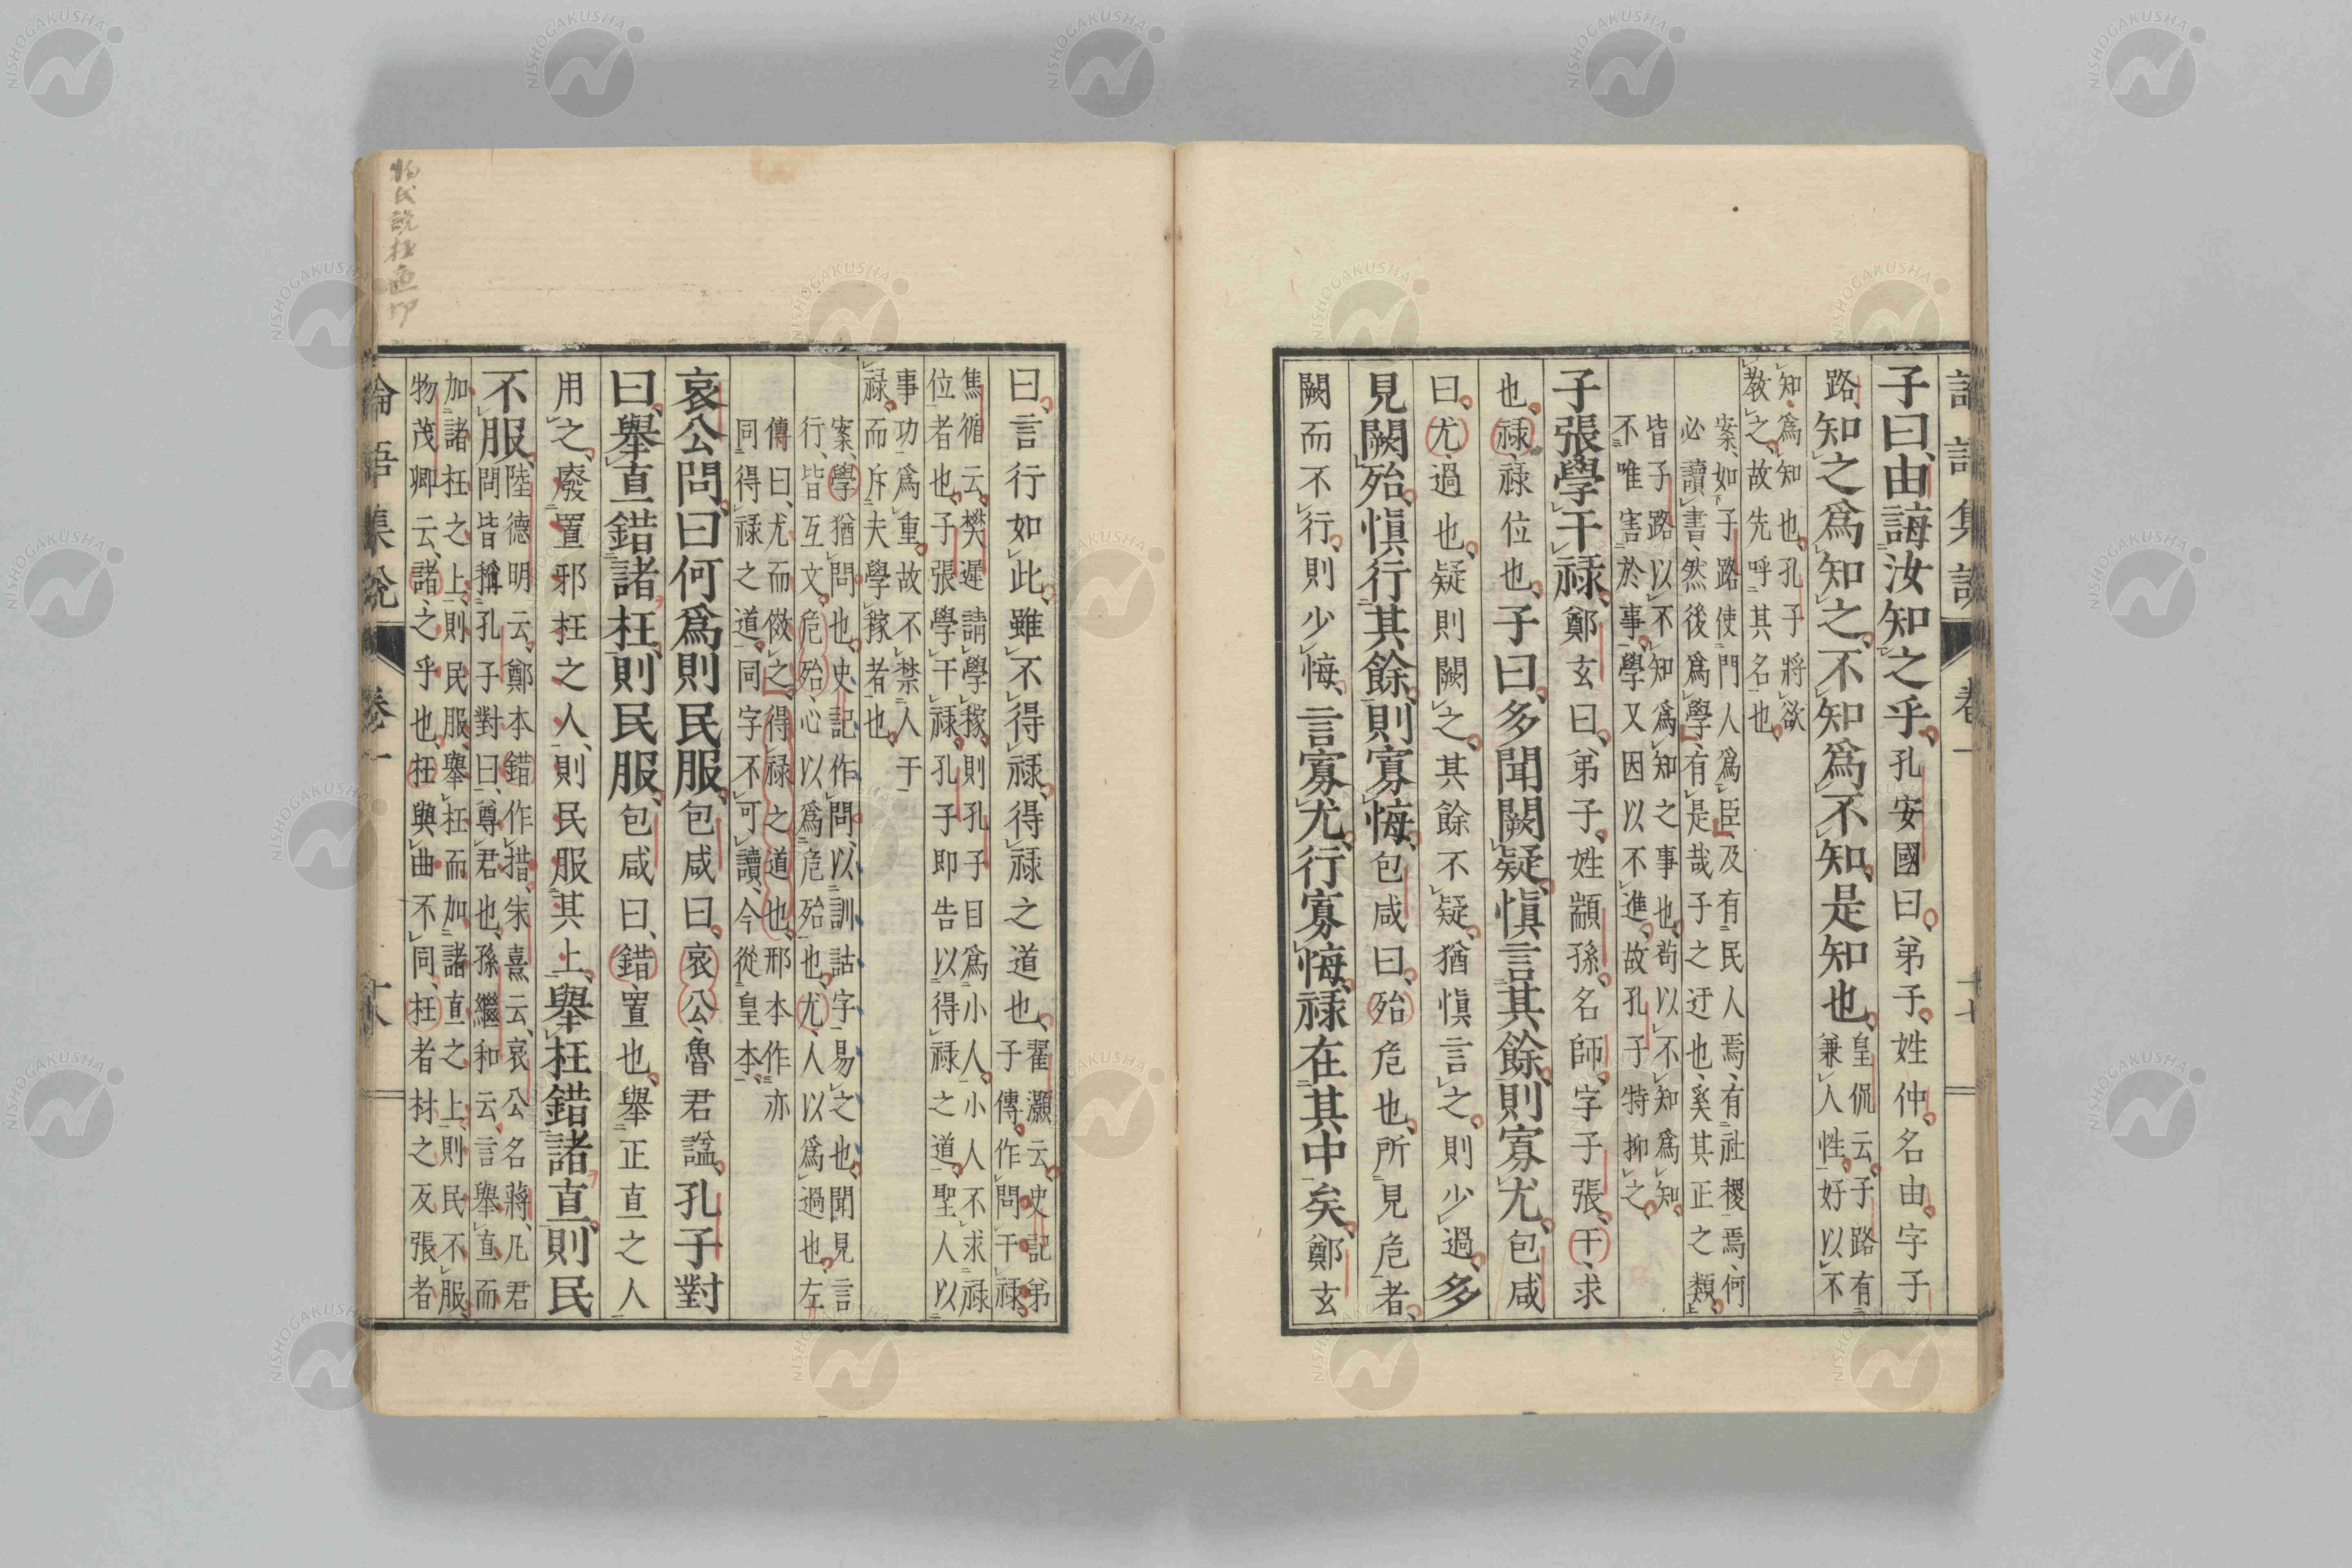 子曰、由誨汝知之乎、孔安國曰、弟子、姓仲、名由、字子
路、知之爲知之、不知爲不知、是知也、皇侃云、子路有
兼人性、好以不
知、爲知也、孔子將欲
教之、故先呼其名也、
案、如子路使門人爲臣、及有民人焉、有社稷焉、何
必讀書、然後爲學、有是哉子之迂也、奚其正之類、
皆子路以不知爲知之事也、苟以不知爲知、
不唯害於事、學又因以不進、故孔子特抑之、
子張學干禄、鄭玄曰、弟子、姓顓孫、名師、字子張、干、求
也、禄、禄位也、子曰、多聞闕疑、愼言其餘、則寡尤、包咸
曰、尤、過也、疑則闕之、其餘不疑、猶愼言之、則少過、多
見闕殆、愼行其餘、則寡悔、包咸曰、殆危也、所見危者、
闕而不行、則少悔、言寡尤、行寡悔、禄在其中矣、鄭玄
曰、言行如此、雖不得禄、得禄之道也、翟灝云、史記弟
子傳、作問干禄、
焦循云、樊遲請學稼、則孔子目爲小人、小人不求禄
位者也、子張學干禄、孔子即告以得禄之道、聖人以
事功爲重、故不禁人于
禄、而斥夫學稼者也、
案、學猶問也、史記作問、以訓詁字易之也、聞見言
行、皆互文、危殆、心以爲危殆也、尤、人以爲過也、左
傳曰、尤而傚之、得禄之道也、邢本作亦
同得禄之道、同字不可讀、今從皇本、
哀公問曰、何爲則民服、包咸曰、哀公、魯君謚、孔子對
曰、舉直錯諸枉、則民服、包咸曰、錯、置也、舉正直之人
用之、廢置邪枉之人、則民服其上、舉枉錯諸直、則民
不服、陸德明云、鄭本錯作措、朱熹云、哀公名蔣、凡君
問皆稱孔子對曰、尊君也、孫繼和云、言舉直而
加諸枉之上、則民服、舉枉而加諸直之上、則民不服、
物茂卿云、諸、之乎也、枉與曲不同、枉者材之反張者
論語集說 卷一 十八